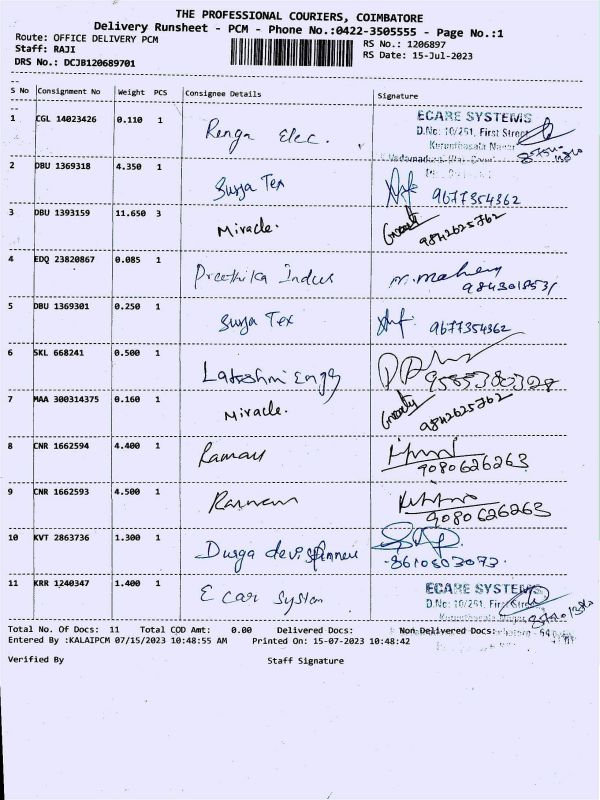 THE PROFESSIONAL COURIERS, COIMBATORE
Delivery Runsheet - PCM - Phone No.:0422-3505555 - Page No.:1
Route: OFFICE DELIVERY PCM
RS No.: 1206897
Staff: RAJI
RS Date: 15-Jul-2023
DRS No.: DCJB120689701
S No Consignment No Weight PCS Consignee Details Signature
1 CGL 14023426 0.110 1 Renga Elec.
ECARE SYSTEMS
D.No: 10/251, First Street
2 DBU 1369318 4.350 1 Surya Tex 9677354362
3 DBU 1393159 11.650 3 Miracle. 9842625762
4 EDQ 23820867 0.085 1 Preethika Indus 9843018531
5 DBU 1369301 0.250 1 Surya Tex 9677354362
6 SKL 668241 0.500 1 Lakshmi Engg
7 MAA 300314375 0.160 1 Miracle. 9842625762
8 CNR 1662594 4.400 1 9080626263
9 CNR 1662593 4.500 1 9080626263
10 KVT 2863736 1.300 1 Durga devi 8610603073
11 KRR 1240347 1.400 1 E car System
ECARE SYSTEMS
D.No: 10/251, First Street
Total No. Of Docs: 11 Total COD Amt: 0.00 Delivered Docs: Non Delivered Docs:
Entered By :KALAIPCM 07/15/2023 10:48:55 AM Printed On: 15-07-2023 10:48:42
Verified By Staff Signature